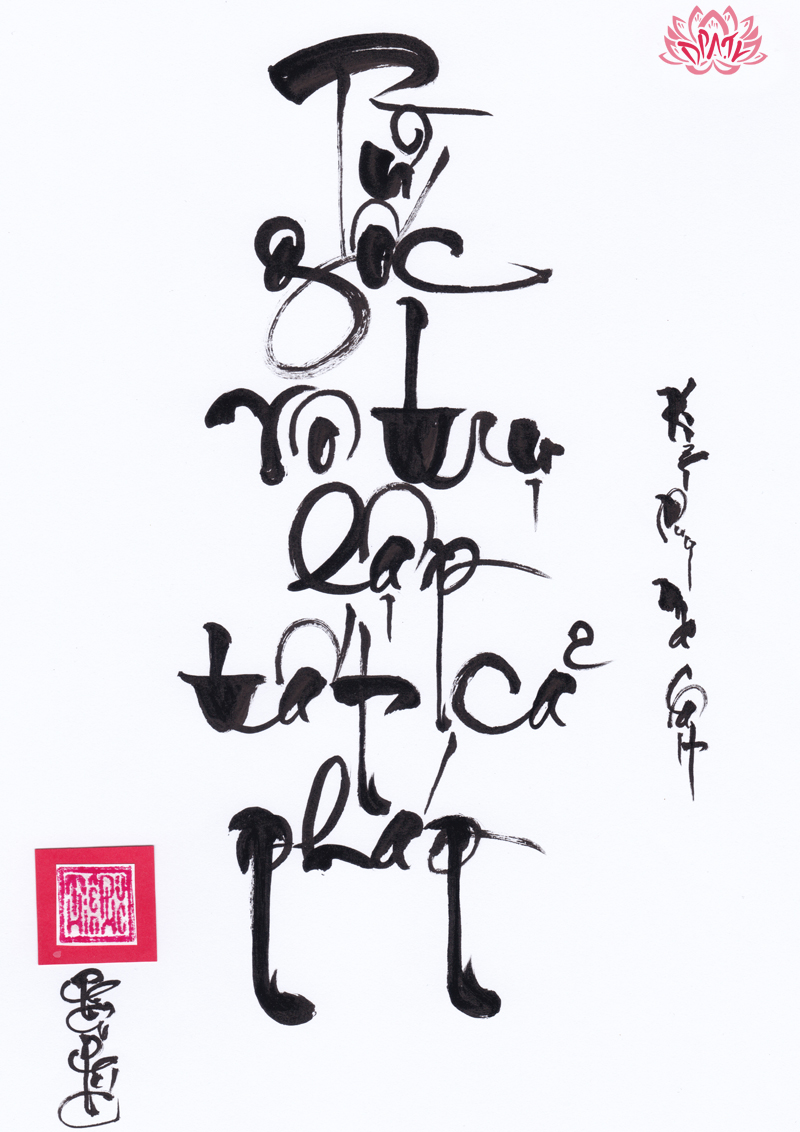 Từ
gốc
vô trụ
lập
tất cả
pháp
Kinh Duy Ma Cật
ĐPATK